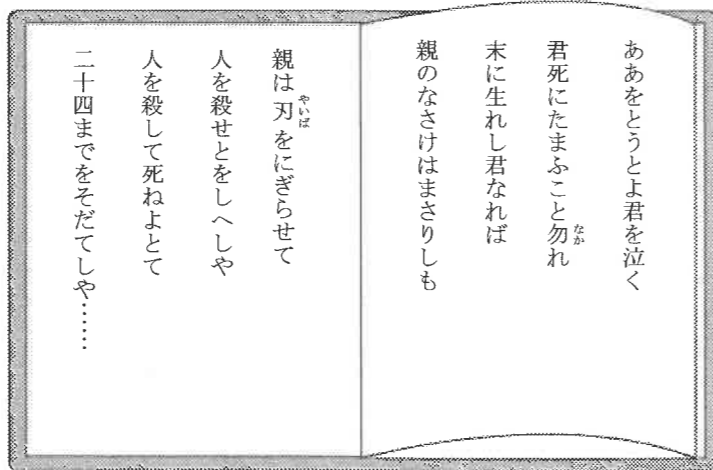 ああをとうとよ君を泣く
君死にたまふこと勿れ
末に生れし君なれば
親のなさけはまさりしも
親は刃をにぎらせて
人を殺せとをしへしや
人を殺して死ねよとて
二十四までをそだてしや……
なか
やいば